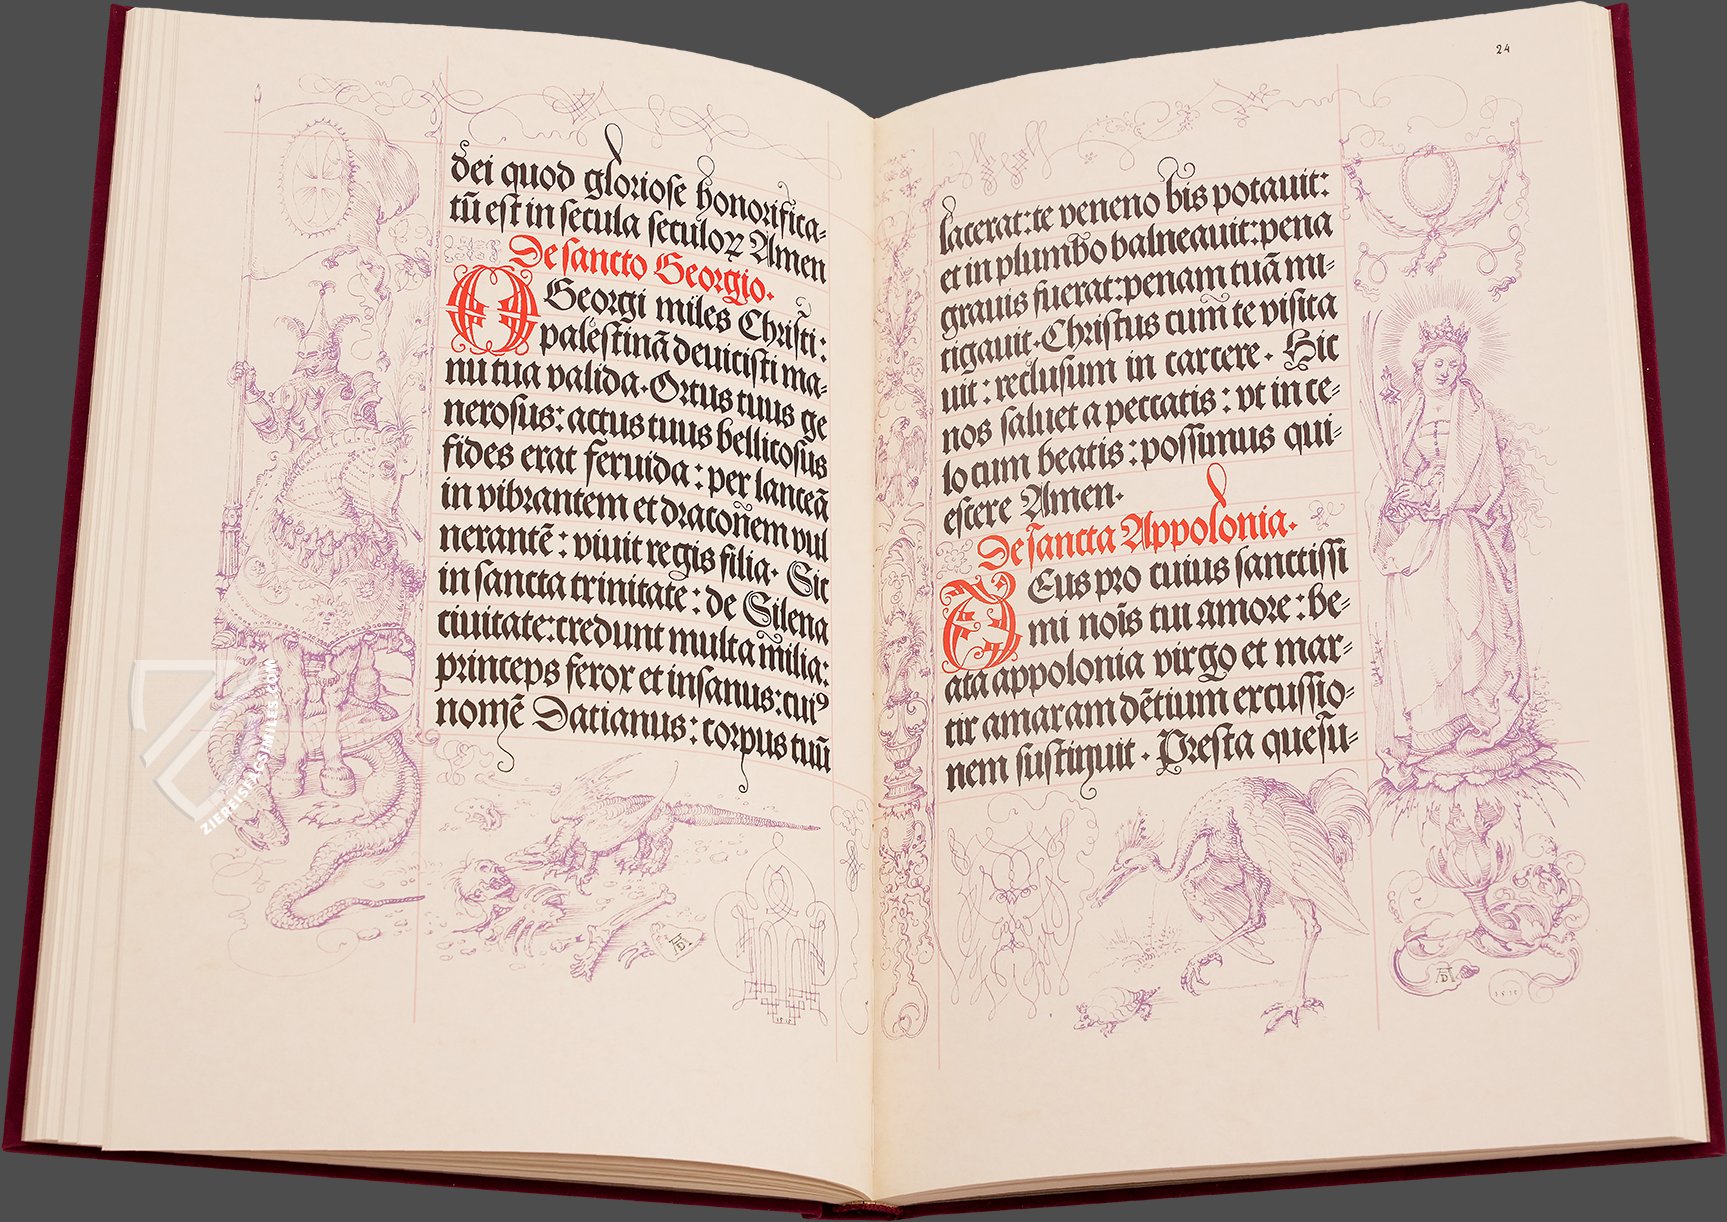 dei quod gloriose honorifica-
tū est in secula seculoꝝ Amen
De sancto Georgio.
O Georgi miles Christi:
palestinā deuicisti ma-
nu tua valida. Ortus tuus ge
nerosus: actus tuus bellicosus
fides erat feruida: per lanceā
in vibrantem et draconem vul
nerantē: viuit regis filia. Sic
in sancta trinitate: de Silena
ciuitate: credunt multa milia:
princeps ferox et insanus: cui⁹
nomē Dacianus: corpus tuū
1515
AD
ZIEREISFACSIMILES.COM
24
lacerat: te veneno bis potauit:
et in plumbo balneauit: pena
grauis fuerat: penam tuā mi-
tigauit. Christus cum te visita
uit: reclusum in carcere. Hic
nos saluet a peccatis: vt in ce-
lo cum beatis: possimus qui-
escere Amen.
De sancta Appolonia.
DEus pro cuius sanctissi
mi nōis tui amore: be-
ata appolonia virgo et mar-
tir amaram dētium excussio-
nem sustinuit. Presta quesu-
AD
1515